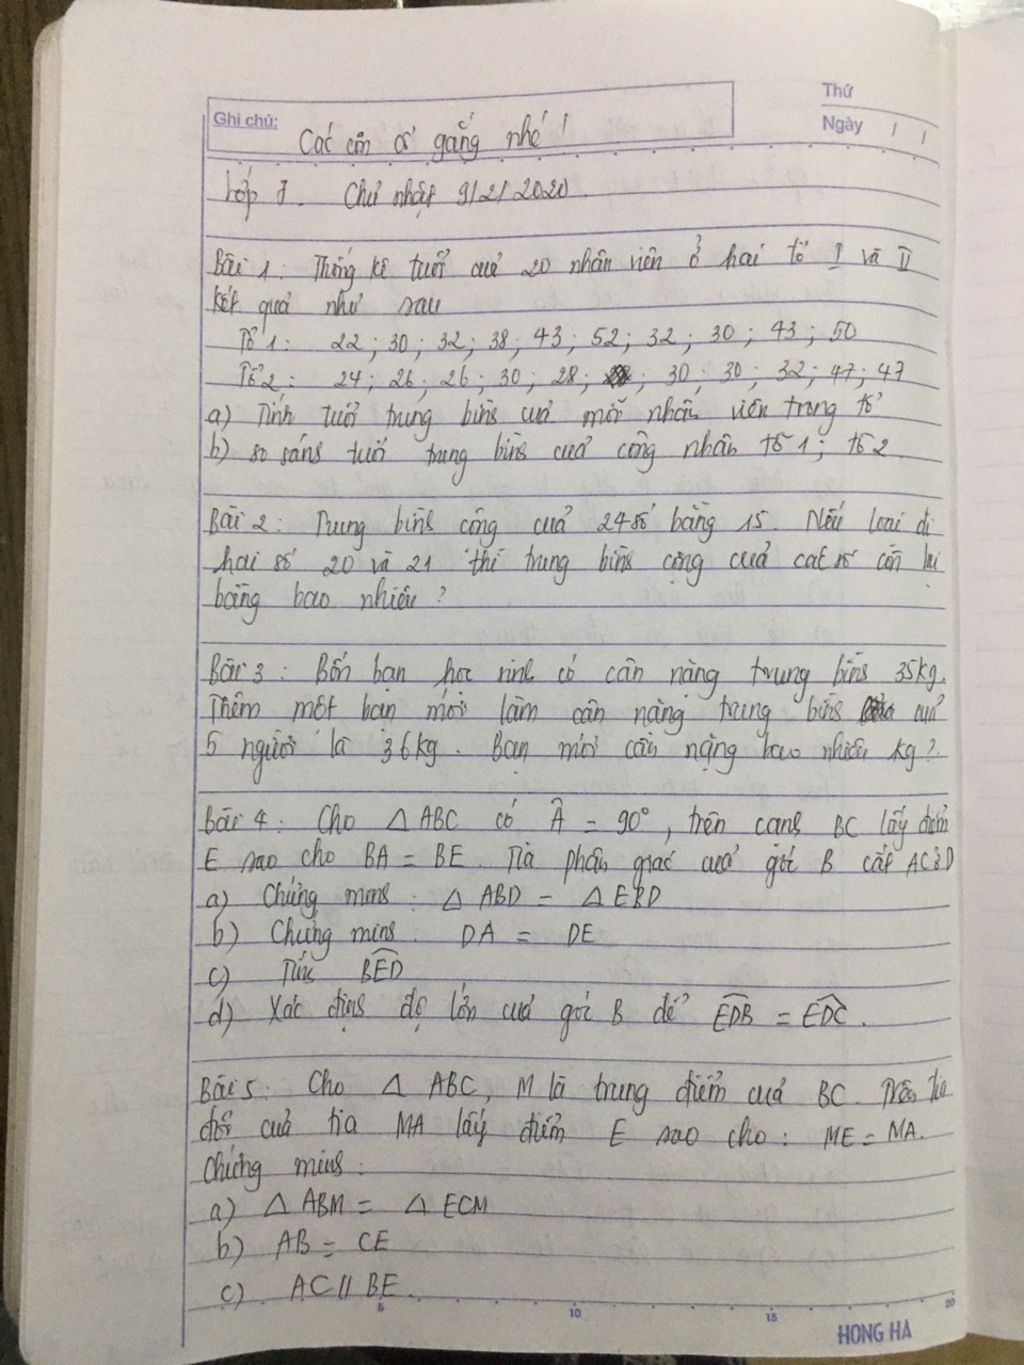 Thứ
Ghi chú:
Ngày / /
Các em cố gắng nhé!
Lớp 7. Chủ nhật 9/2/2020.
Bài 1: Thống kê tuổi của 20 nhân viên ở hai tổ I và II
kết quả như sau
Tổ 1: 22; 30; 32; 38; 43; 52; 32; 30; 43; 50
Tổ 2: 24; 26; 26; 30; 28; ; 30; 30; 32; 47; 47
a) Tính tuổi trung bình của mỗi nhân viên trong tổ
b) so sánh tuổi trung bình của công nhân tổ 1; tổ 2.
Bài 2: Trung bình cộng của 24 số bằng 15. Nếu loại đi
hai số 20 và 21 thì trung bình cộng của các số còn lại
bằng bao nhiêu?
Bài 3: Bốn bạn học sinh có cân nặng trung bình 35kg.
Thêm một bạn mới làm cân nặng trung bình của
5 người là 36kg. Bạn mới cân nặng bao nhiêu kg?
Bài 4: Cho △ ABC có Â = 90°, trên cạnh BC lấy điểm
E sao cho BA = BE. Tia phân giác của góc B cắt AC ở D
a) Chứng minh: △ ABD = △ EBD
b) Chứng minh. DA = DE
c) Tính B͡ED
d) Xác định độ lớn của góc B để E͡DB = E͡DC.
Bài 5: Cho △ ABC, M là trung điểm của BC. Trên tia
đối của tia MA lấy điểm E sao cho: ME = MA.
Chứng minh:
a) △ ABM = △ ECM
b) AB = CE
c) AC // BE.
5 10 15 20
HONG HA